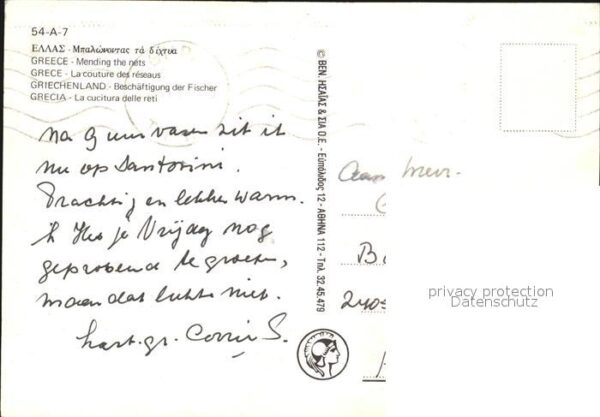 54-A-7
ΕΛΛΑΣ - Μπαλώνοντας τά δίχτυα
GREECE - Mending the nets
GRECE - La couture des réseaux
GRIECHENLAND - Beschäftigung der Fischer
GRECIA - La cucitura delle reti
Na 9 uur varen zit ik
nu op Santorini.
Prachtig en lekker warm.
Ik Heb je Vrijdag nog
geprobeerd te groeten,
maar dat lukte niet.
hart. gr. Corrie S.
© ΒΕΝ. ΗΣΑΪΑΣ & ΣΙΑ Ο.Ε. - Εὐπόλιδος 12 - ΑΘΗΝΑ 112 - Τηλ. 32.45.479
Aan Mevr.
privacy protection
Datenschutz